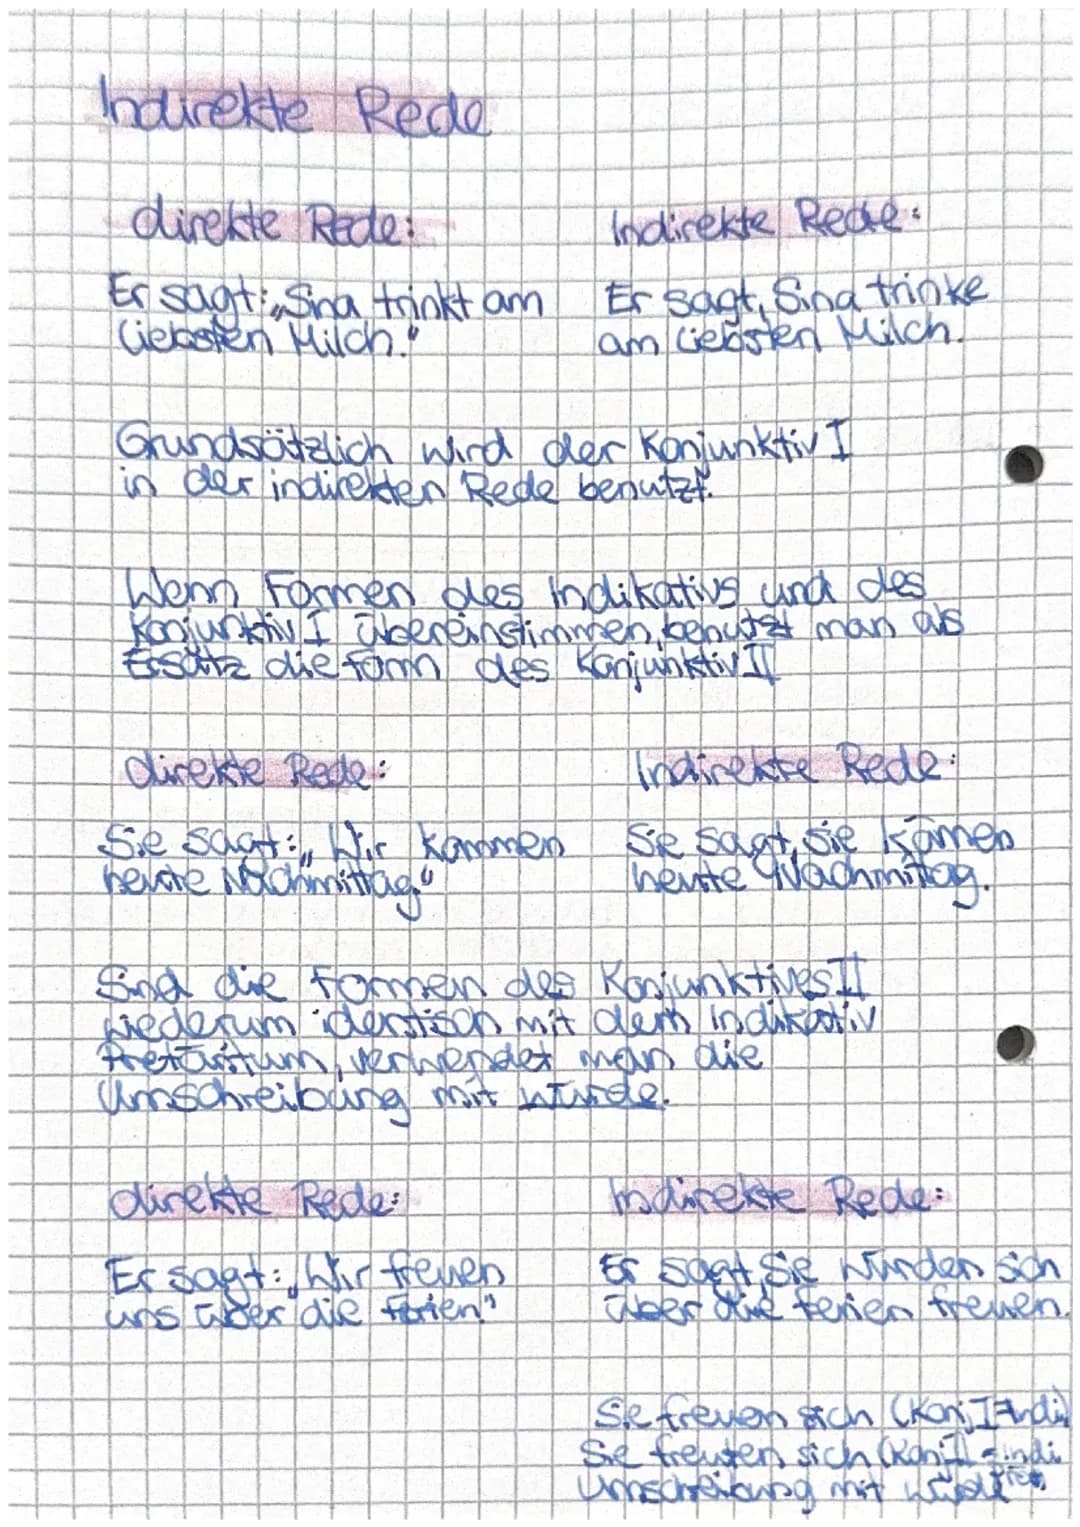 Indirekte Rede
direkte Rede: Indirekte Rede:
Er sagt: „Sina trinkt am Er sagt, Sina trinke
liebsten Milch." am liebsten Milch.
Grundsätzlich wird der Konjunktiv I
in der indirekten Rede benutzt.
Wenn Formen des Indikativs und des
Konjunktiv I übereinstimmen, benutzt man als
Ersatz die Form des Konjunktiv II
direkte Rede: Indirekte Rede:
Sie sagt: „Wir kommen Sie sagt, sie kämen
heute Nachmittag." heute Nachmittag.
Sind die Formen des Konjunktives II
wiederum identisch mit dem Indikativ
Pretäritum, verwendet man die
Umschreibung mit würde.
direkte Rede: Indirekte Rede:
Er sagt: „Wir freuen Er sagt, Sie würden sich
uns über die Ferien" über die Ferien freuen.
Sie freuen sich (Konj I = Indi)
Sie freuten sich (Konj II = indi
Umschreibung mit würde